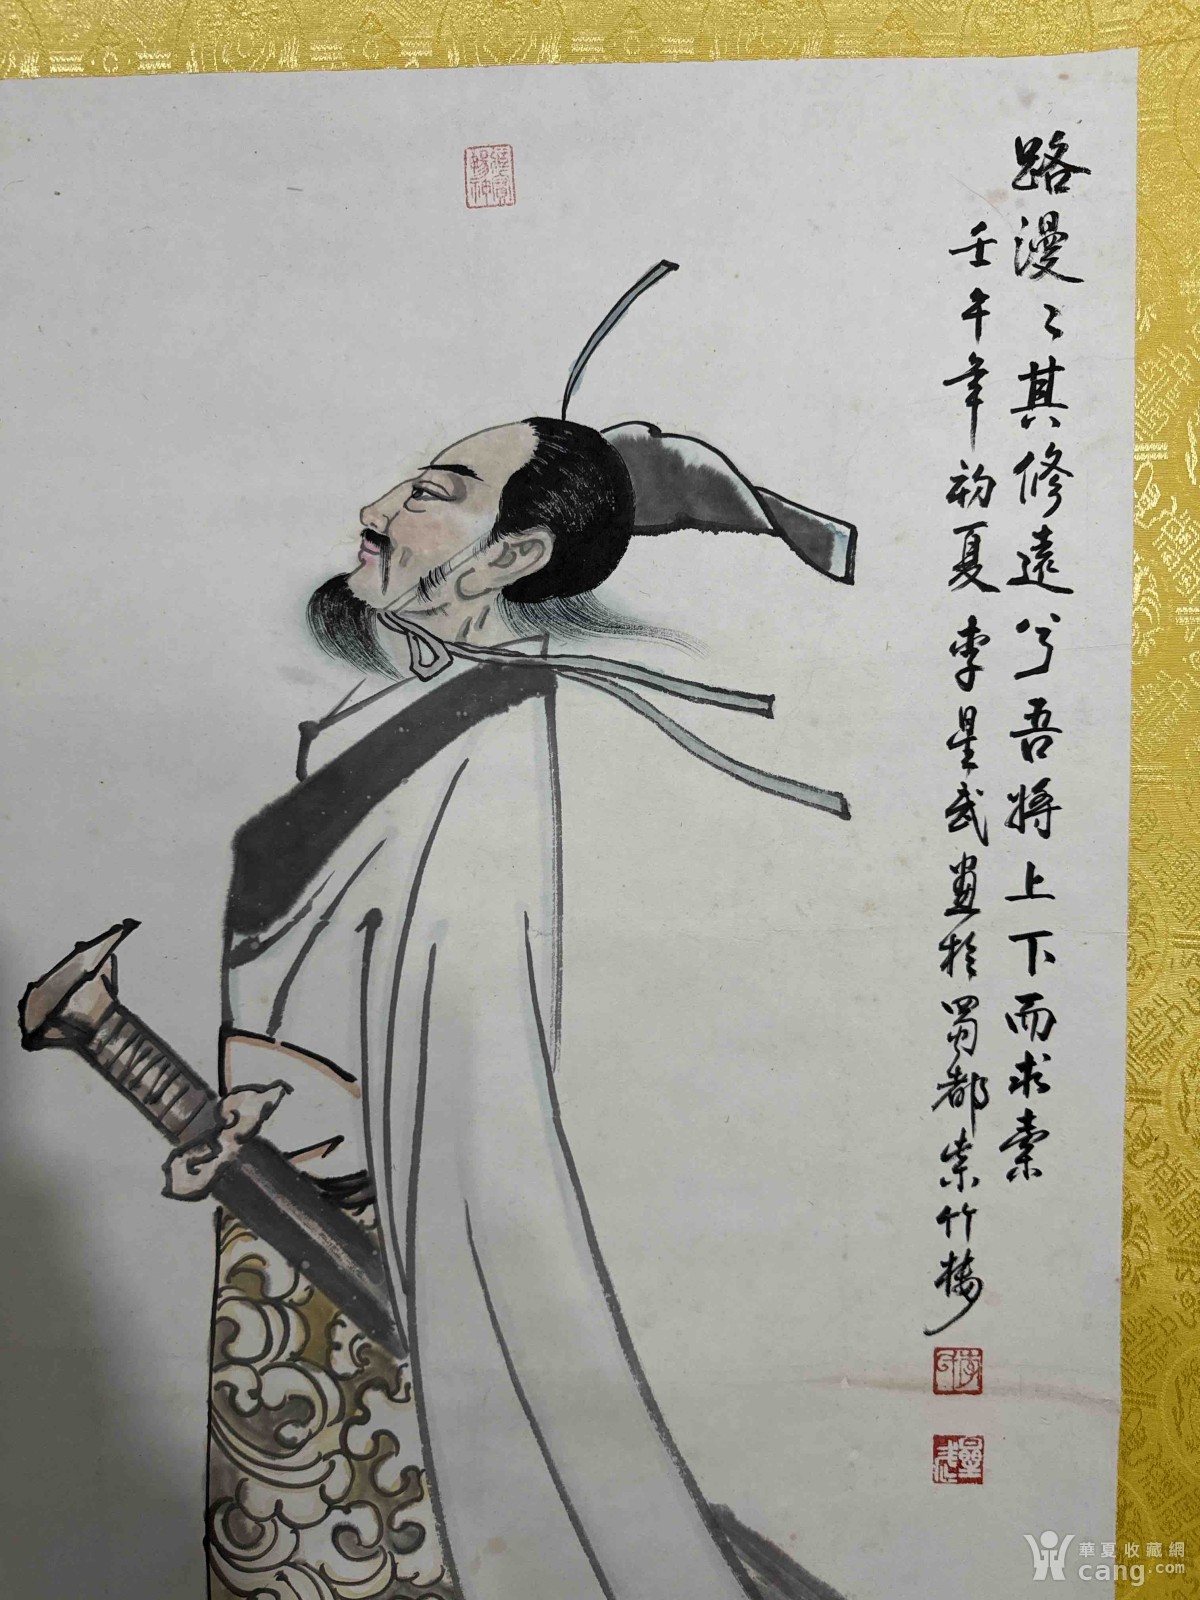 路漫〻其修遠兮吾將上下而求索
壬午年初夏李星武畫於蜀都紫竹樓
李
星武
華夏收藏網
cang.com